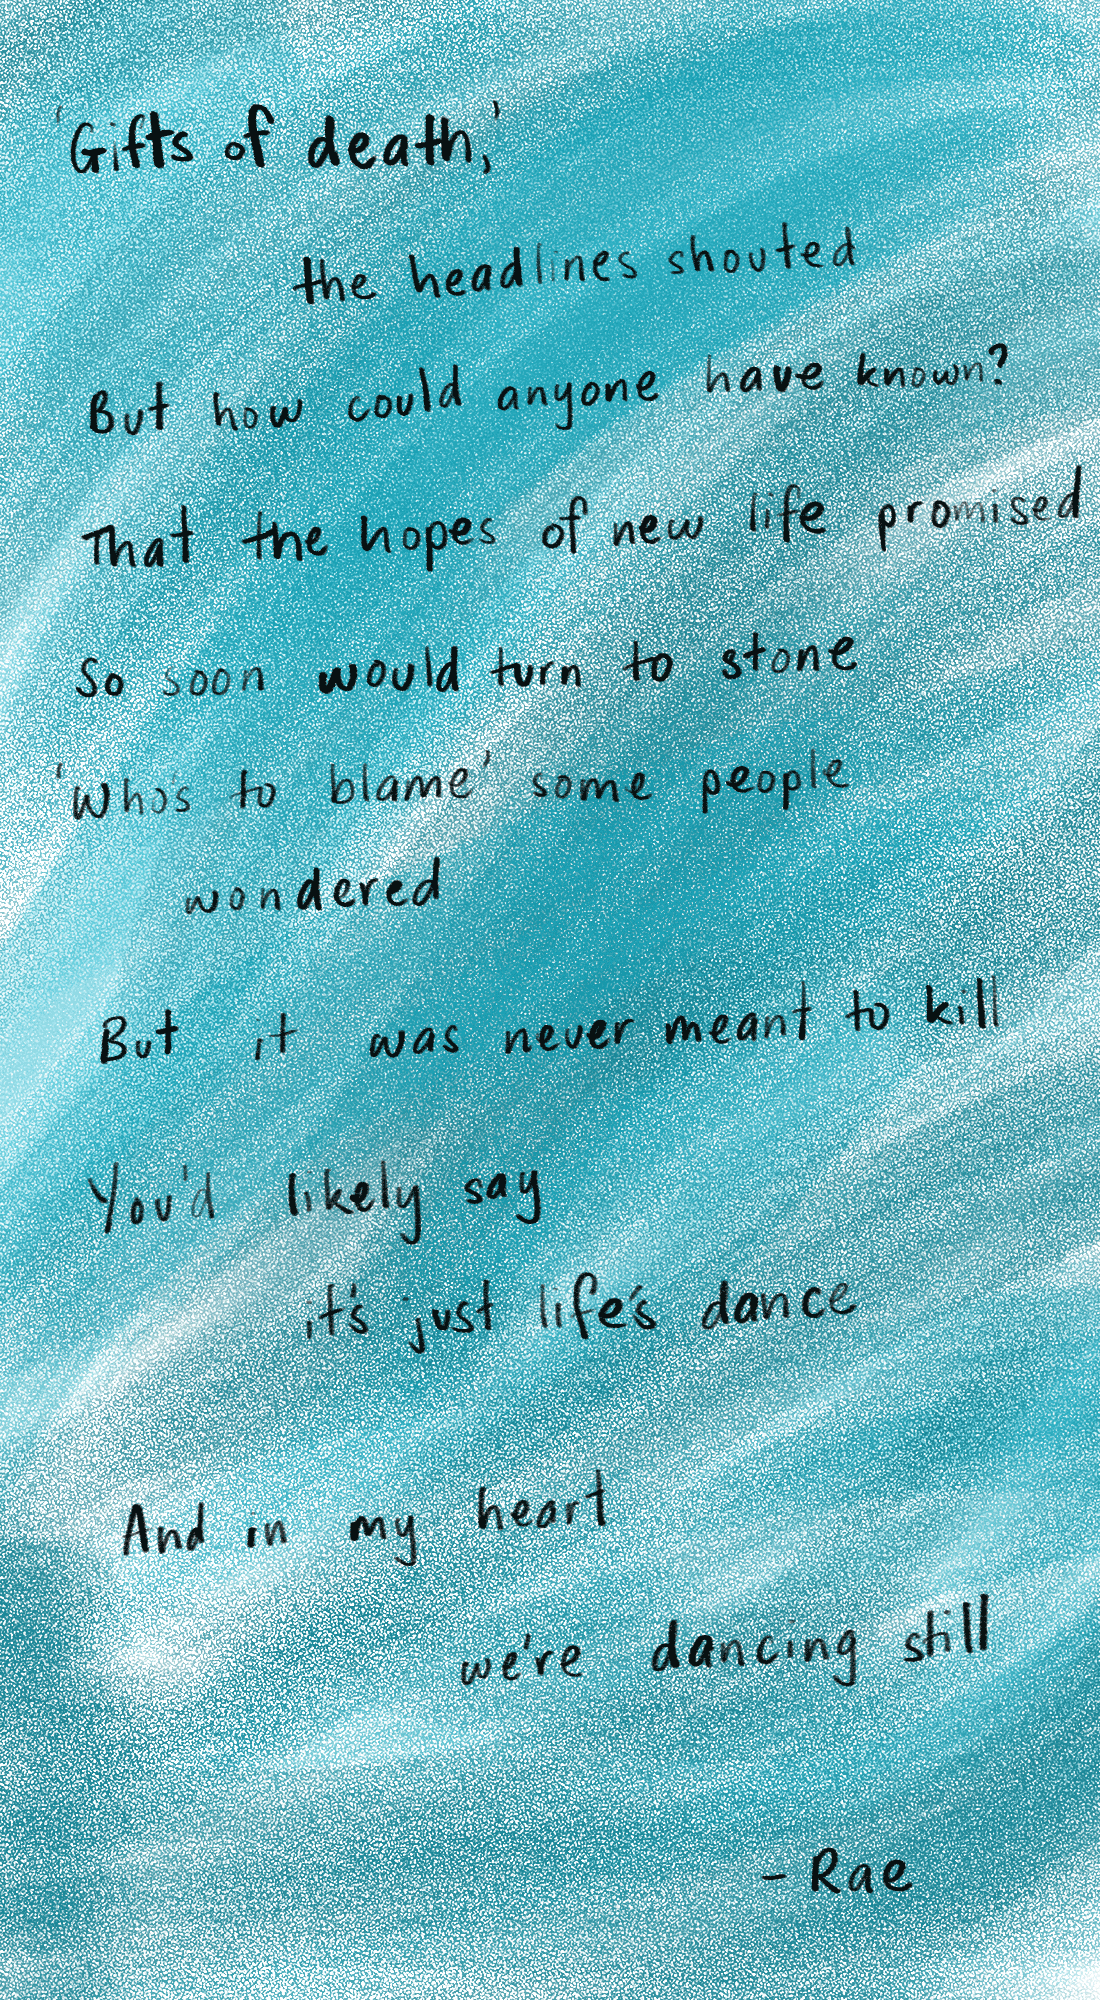 'Gifts of death,'
the headlines shouted
But how could anyone have known?
That the hopes of new life promised
So soon would turn to stone
'Who's to blame' some people
wondered
But it was never meant to kill
You'd likely say
it's just life's dance
And in my heart
we're dancing still
- Rae